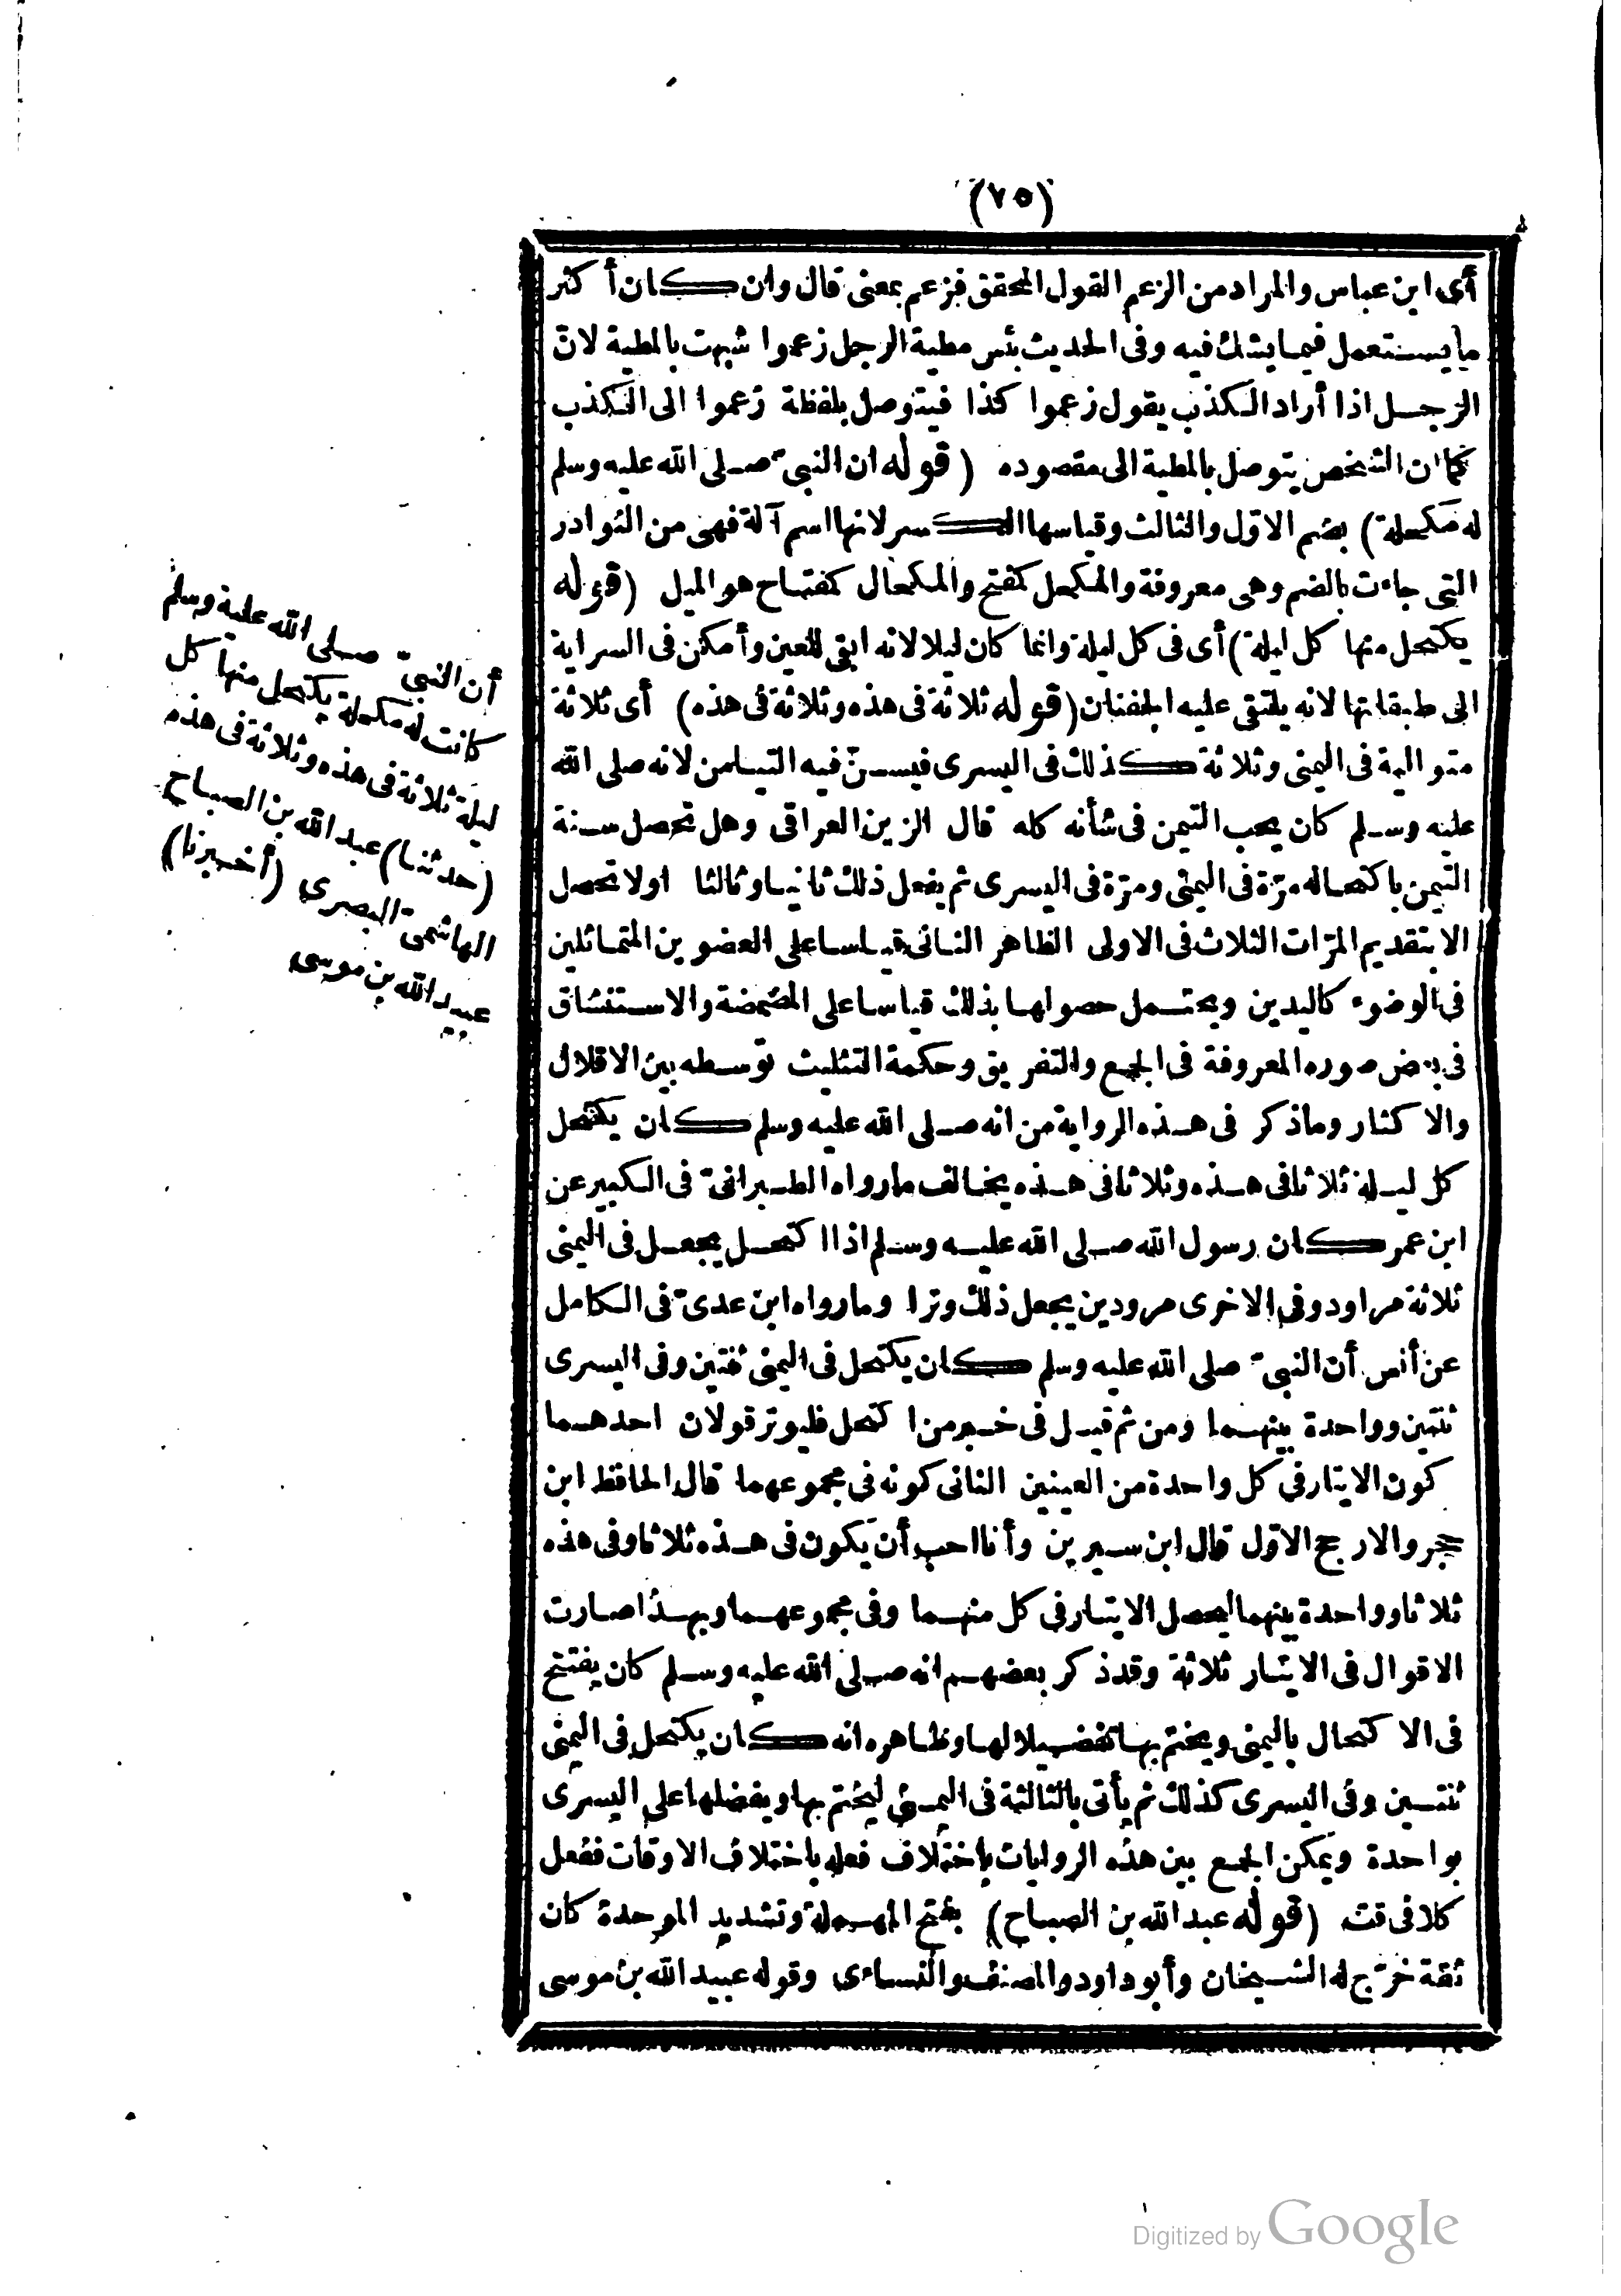 (٧٥)
أى ابن عباس والمراد من الزعم القول المحقق فزعم بمعنى قال وان كان أكثر
ما يستعمل فيما يشك فيه وفى الحديث بئس مطية الرجل زعموا شبهت بالمطية لان
الرجل اذا أراد الكذب يقول زعموا كذا فيتوصل بلفظة زعموا الى الكذب
كما ان الشخص يتوصل بالمطية الى مقصوده (قوله ان النبى صلى الله عليه وسلم
له مكحلة) بضم الاول والثالث وقياسها الكسر لانها اسم آلة فهى من النوادر
التى جاءت بالضم وهى معروفة والمكحل كمفتح والمكحال كمفتاح هو الميل (قوله
يكتحل منها كل ليلة) أى فى كل ليلة وانما كان ليلا لانه ابقى للعين وأمكن فى السراية
الى طبقاتها لانه يلتقى عليه الجفنان (قوله ثلاثة فى هذه وثلاثة فى هذه) أى ثلاثة
متوالية فى اليمنى وثلاثة كذلك فى اليسرى فيسن فيه التيامن لانه صلى الله
عليه وسلم كان يحب التيمن فى شأنه كله قال الزين العراقى وهل تحصل سنة
التيمن باكتحاله مرّة فى اليمنى ومرّة فى اليسرى ثم يفعل ذلك ثانيا وثالثا اولا تحصل
الا بتقديم المرّات الثلاث فى الاولى الظاهر الثانى قياسا على العضوين المتماثلين
فى الوضوء كاليدين ويحتمل حصولها بذلك قياسا على المضمضة والاستنشاق
فى بعض صوره المعروفة فى الجمع والتفريق وحكمة التثليث توسطه بين الاقلال
والاكثار وماذكر فى هذه الرواية من انه صلى الله عليه وسلم كان يكتحل
كل ليلة ثلاثا فى هذه وثلاثا فى هذه يخالف مارواه الطبرانىّ فى الكبير عن
ابن عمر كان رسول الله صلى الله عليه وسلم اذا اكتحل يجعل فى اليمنى
ثلاثة مراود وفى الاخرى مرودين يجعل ذلك وترا ومارواه ابن عدىّ فى الكامل
عن أنس أن النبىّ صلى الله عليه وسلم كان يكتحل فى اليمنى ثنتين وفى اليسرى
ثنتين وواحدة بينهما ومن ثم قيل فى خبر من اكتحل فليوتر قولان احدهما
كون الايتار فى كل واحدة من العينين الثانى كونه فى مجموعهما قال الحافظ ابن
حجر والارجح الاوّل قال ابن سيرين وأنا احب أن يكون فى هذه ثلاثا وفى هذه
ثلاثا وواحدة بينهما ليحصل الايتار فى كل منهما وفى مجموعهما وبهذا صارت
الاقوال فى الايتار ثلاثة وقد ذكر بعضهم انه صلى الله عليه وسلم كان يفتتح
فى الاكتحال باليمنى ويختم بها تفضيلا لها وظاهره انه كان يكتحل فى اليمنى
ثنتين وفى اليسرى كذلك ثم يأتى بالثالثة فى اليمنى ليختم بها ويفضلها على اليسرى
بواحدة ويمكن الجمع بين هذه الروايات باختلاف فعله باختلاف الاوقات ففعل
كلا فى قت (قوله عبد الله بن الصباح) بفتح المهملة وتشديد الموحدة كان
ثقة خرّج له الشيخان وأبو داود والمصنف والنساءى وقوله عبيد الله بن موسى
أن النبىّ صلى الله علية وسلم
كانت له مكحلة يكتحل منها كل
ليلة ثلاثة فى هذه وثلاثة فى هذه
(حدثنا) عبد الله بن الصباح
الهاشمىّ البصرى (أخبرنا)
عبيد الله بن موسى
Digitized by Google